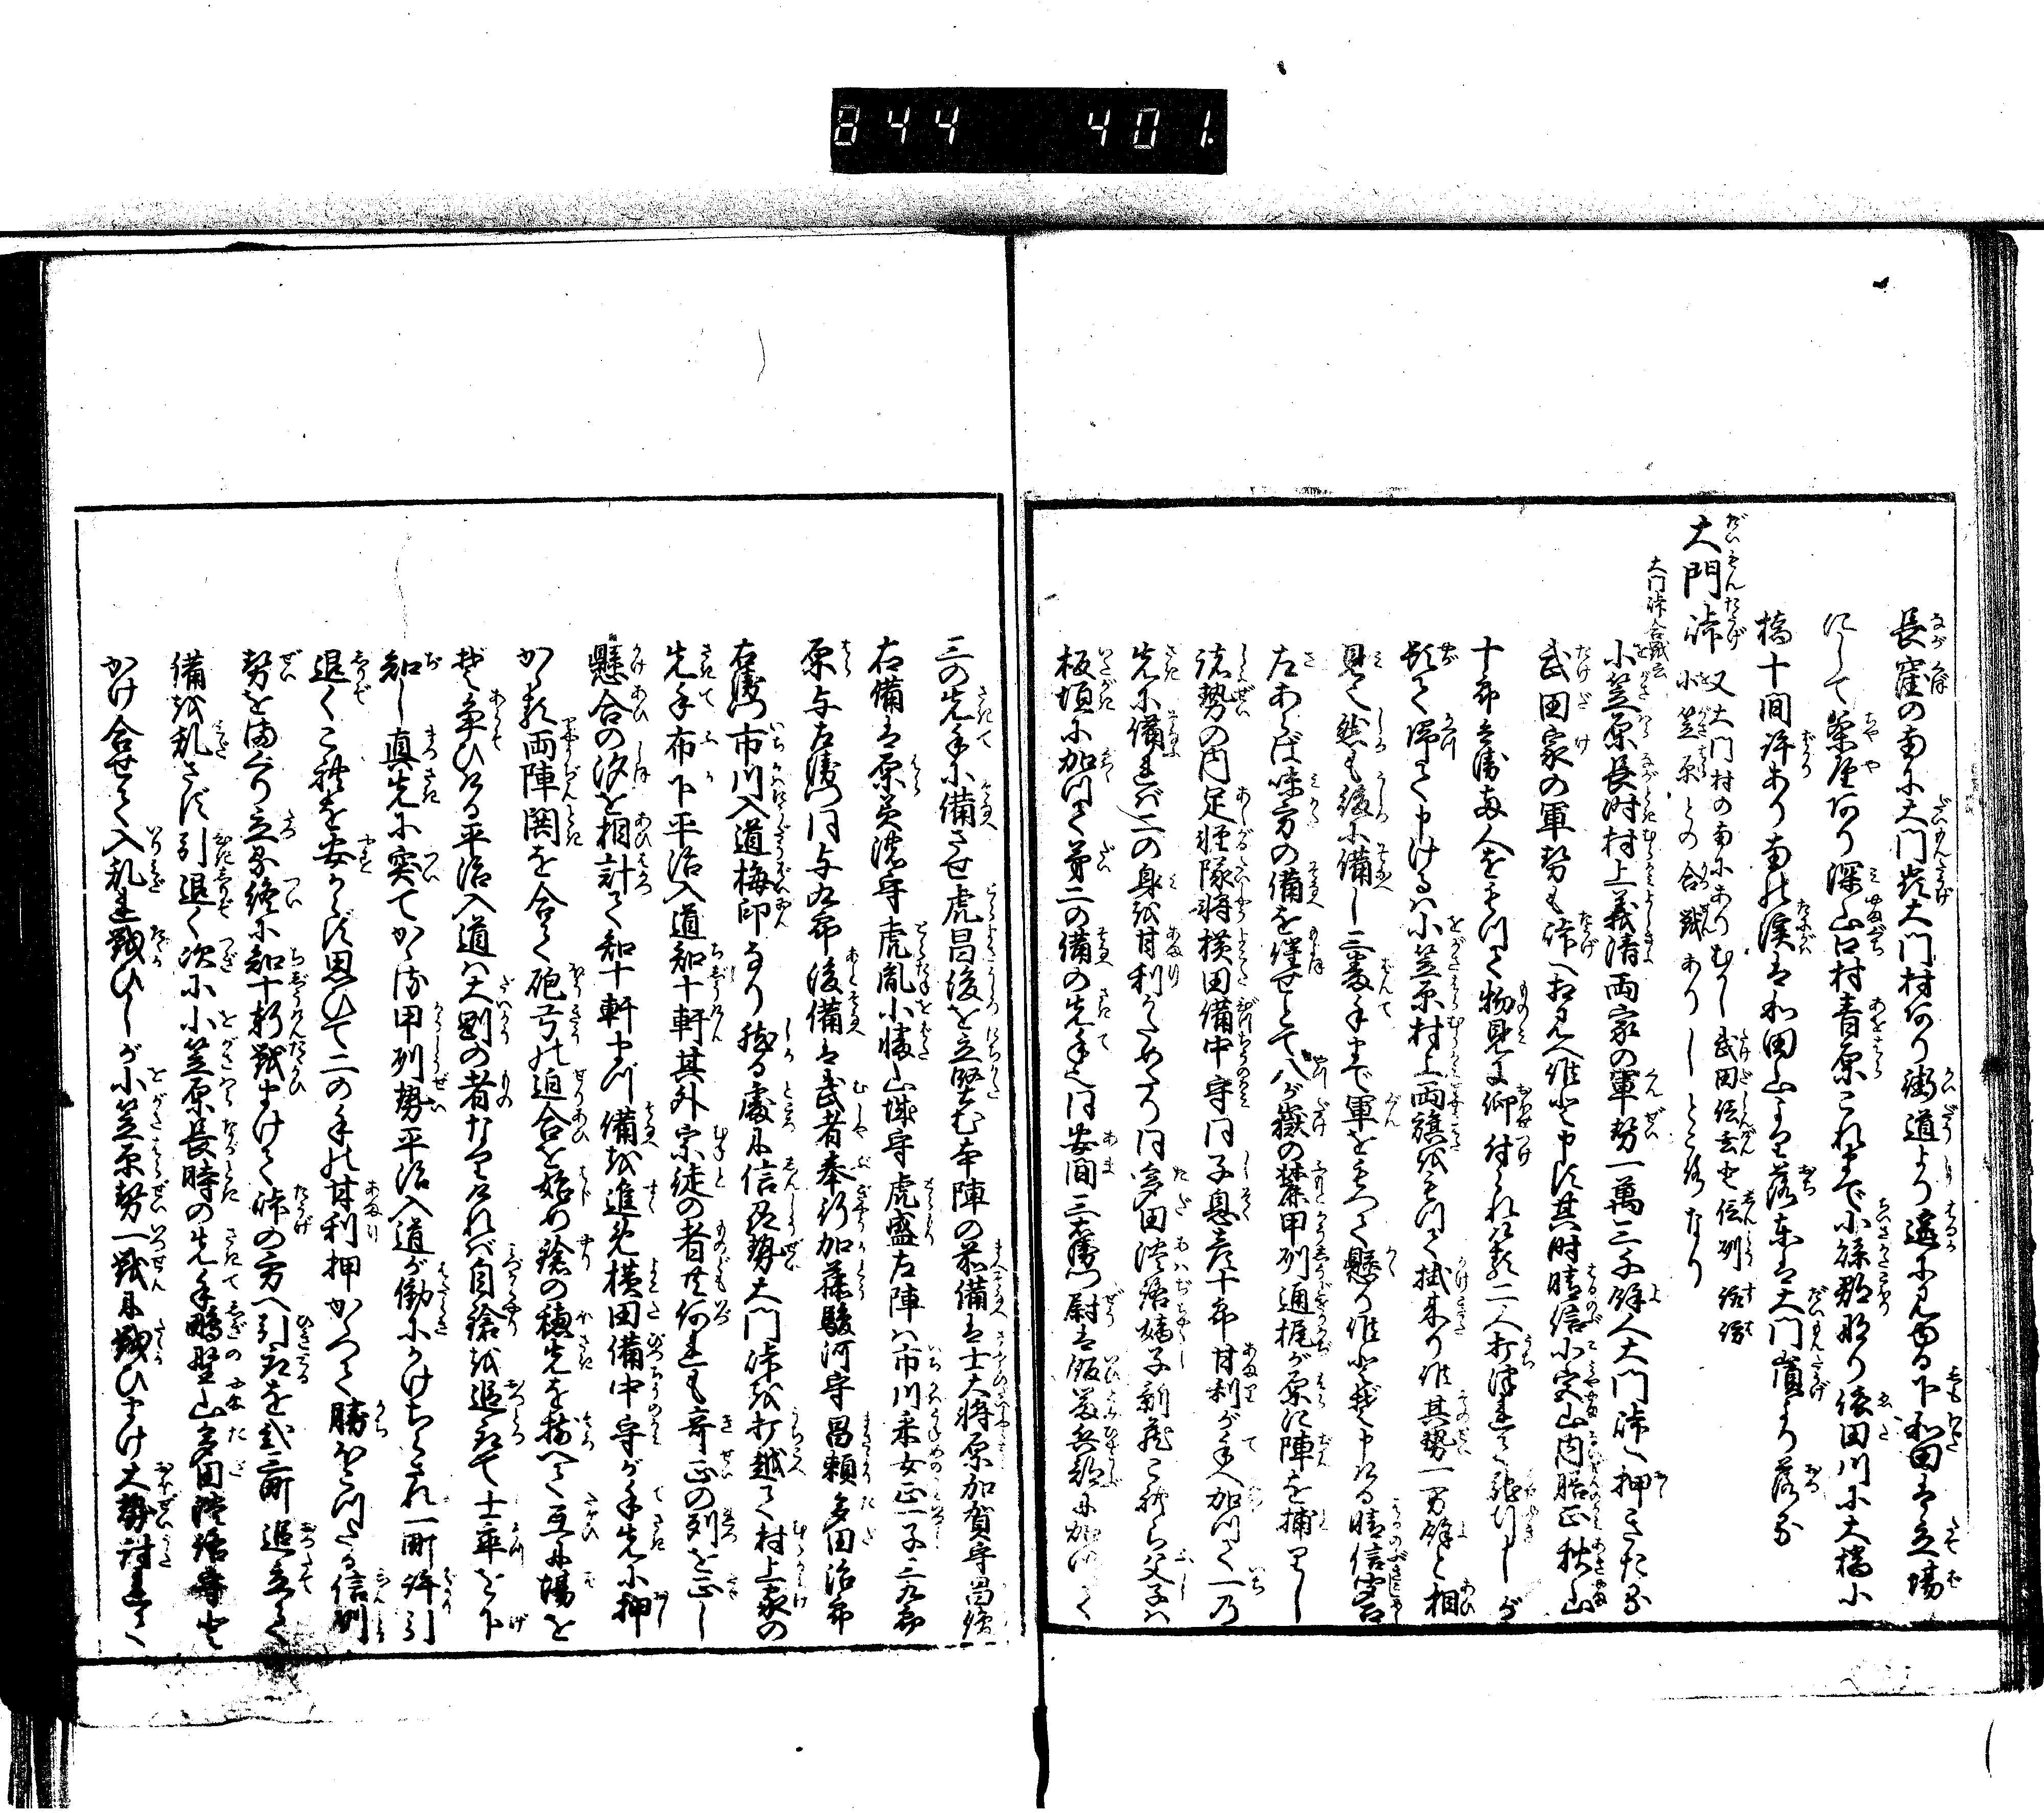 844 401.
長窪の南に大門嶺大門村有り街道より遥に見ゆる下和田は立場
にして茶屋有り深山口村青原これまで小縣郡なり依田川に大橋小
橋十間許あり南の渓は和田山より落東は大門嶺より落る
大門峠 又大門村の南にありむかし武田信玄と信州諏訪
小笠原との合戦ありしところなり
大門峠合戦云
小笠原長時村上義清両家の軍勢一萬三千餘人大門峠へ押きたる
武田家の軍勢も峠へおし入候と申す其時晴信小宮山丹後正秋山
十郎兵衛両人をもつて物見に仰付られける二人打連て馳行しが
頓て帰て申けるハ小笠原村上両旗をもつて掛来り候其勢一万餘と相
見え然も後に備し二番手まで軍をもつて懸り候と申ける晴信宣
左あらば味方の備を繰せとて八が嶽の麓甲州通梶が原に陣を捕りし
諸勢の内足軽隊将横田備中守同子息彦十郎甘利が手へ加つて一の
先に備ればニの身を甘利つとめたり同多田淡路嫡子新蔵これら父子ハ
板垣に加つて第二の備の先手と同安間三右衛門尉は飯冨兵部に加つて
三の先手に備させ虎昌後を立堅む本陣の前備は士大将原加賀守昌俊
右備は原美濃守虎胤小幡山城守虎盛左陣ハ市川采女正一子二九郎
原与左衛門同与九郎後備は武者奉行加藤駿河守昌頼多田治部
右衛門市川入道梅印なり然る處に信州勢大門峠を打越て村上家の
先手布下平治入道知十軒其外宗徒の者共何れも奇正の列を正し
懸合の汐を相計て知十軒まづ備を進め横田備中守が手先に押
かくる両陣鬨を合て砲弓の迫合を始め鎗の穂先を揃へて互に場を
ぞ争ひける平治入道ハ大剛の者なりければ自鎗を追取て士卒を下
知し真先に突てかくる甲州勢平治入道が働にかけちらされ一町許引
退くこれを安からず思ひて二の手の甘利押かつて勝ほこつたる信州
勢を油くり立る終に知十軒戦まけて峠の方へ引取を弐三町追立て
備を乱さず引退く次に小笠原長時の先手鴫野山多田淡路守と
かけ合せて入乱れ戦ひしが小笠原勢一戦に戦ひまけ大勢討れて